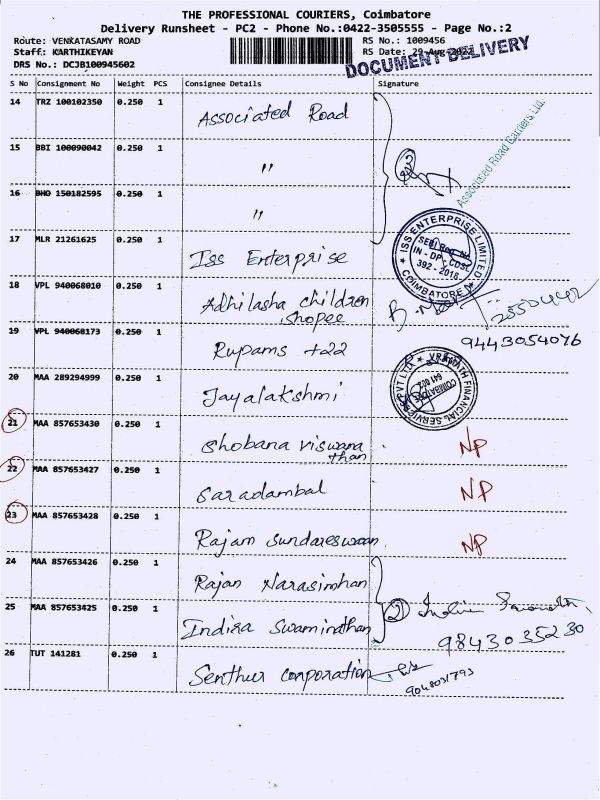 THE PROFESSIONAL COURIERS, Coimbatore
Delivery Runsheet - PC2 - Phone No.:0422-3505555 - Page No.:2
Route: VENKATASAMY ROAD
RS No.: 1009456
Staff: KARTHIKEYAN
RS Date: 29-Aug-2022
DRS No.: DCJB100945602
DOCUMENT DELIVERY
S No Consignment No Weight PCS Consignee Details Signature
14 TRZ 100102350 0.250 1 Associated Road
15 BBI 100090042 0.250 1 "
Associated Road Carriers Ltd.
16 BHO 150182595 0.250 1 "
17 MLR 21261625 0.250 1 Iss Enterprise
ISS ENTERPRISE LIMITED
SEBI Reg. No.
IN - DP - CDSL
392 - 2018
COIMBATORE
18 VPL 940068010 0.250 1 Adhilasha children
shopee
2550442
19 VPL 940068173 0.250 1 Rupams +22
9443054076
20 MAA 289294999 0.250 1 Jayalakshmi
FINANCIAL SERVICES PVT LTD
COIMBATORE
21 MAA 857653430 0.250 1 Shobana viswana
than
NP
22 MAA 857653427 0.250 1 Saradambal NP
23 MAA 857653428 0.250 1 Rajam Sundareswaan NP
24 MAA 857653426 0.250 1 Rajan Narasimhan
25 MAA 857653425 0.250 1 Indira Swaminathan
2
9843035230
26 TUT 141281 0.250 1 Senthur corporation
9048031793